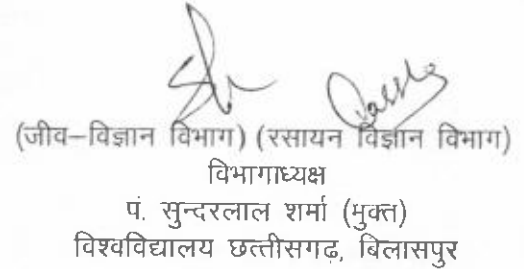 (जीव–विज्ञान विभाग) (रसायन विज्ञान विभाग)
विभागाध्यक्ष
पं. सुन्दरलाल शर्मा (मुक्त)
विश्वविद्यालय छत्तीसगढ़, बिलासपुर